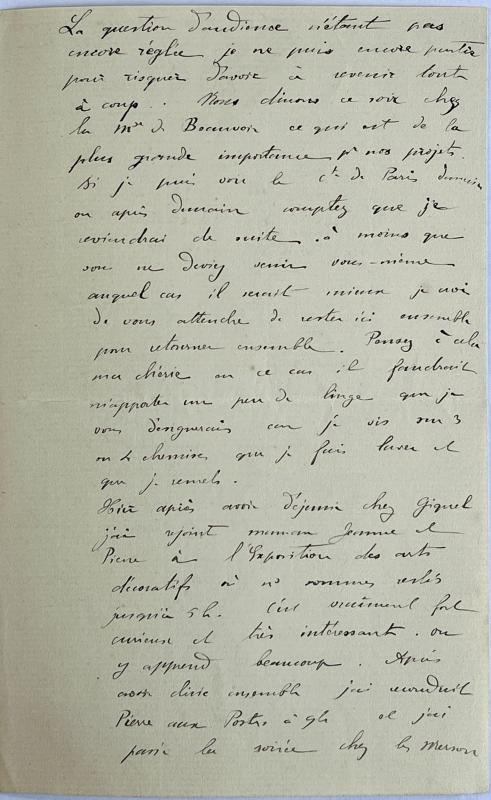 La question d'audience n'étant pas
encore réglée je ne puis encore partir
pour risquer d'avoir à revenir tout
à coup.. Nous dinons ce soir chez
la Mse de Beauvoir ce qui est de la
plus grande importance pr nos projets.
Si je puis voir le Cte de Paris demain
ou après demain comptez que je
reviendrai de suite. à moins que
vous ne deviez venir vous-même
auquel cas il serait mieux je crois
de vous attendre de rester ici ensemble
pour retourner ensemble. Pensez à cela
ma chérie en ce cas il faudrait
m'apporter un peu de linge que je
vous désignerais car je vis sur 3
ou 4 chemises que je fais laver et
que je remets.
Hier après avoir déjeuné chez Giquel
j'ai rejoint maman Jeanne et
Pierre à l'Exposition des arts
décoratifs où ns sommes restés
jusqu'à 5h. C'est vraiment fort
curieux et très intéressant. on
y apprend beaucoup. Après
avoir diné ensemble j'ai reconduit
Pierre aux Postes à 9h et j'ai
passé la soirée chez les Merson